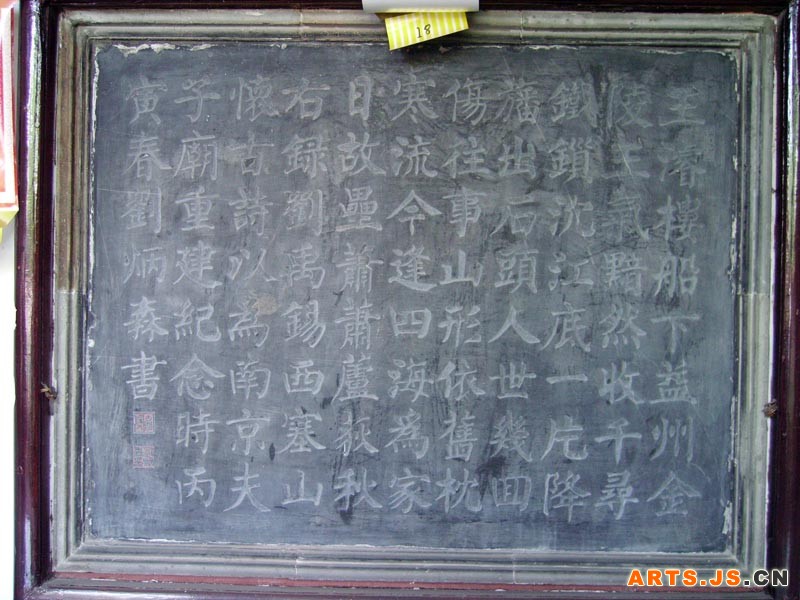 王濬樓船下益州金
陵王氣黯然收千尋
鐵鎖沈江底一片降
旛出石頭人世幾回
傷往事山形依舊枕
寒流今逢四海為家
日故壘蕭蕭蘆荻秋
右錄劉禹錫西塞山
懷古詩以為南京夫
子廟重建紀念時丙
寅春劉炳森書
18
ARTS.JS.CN